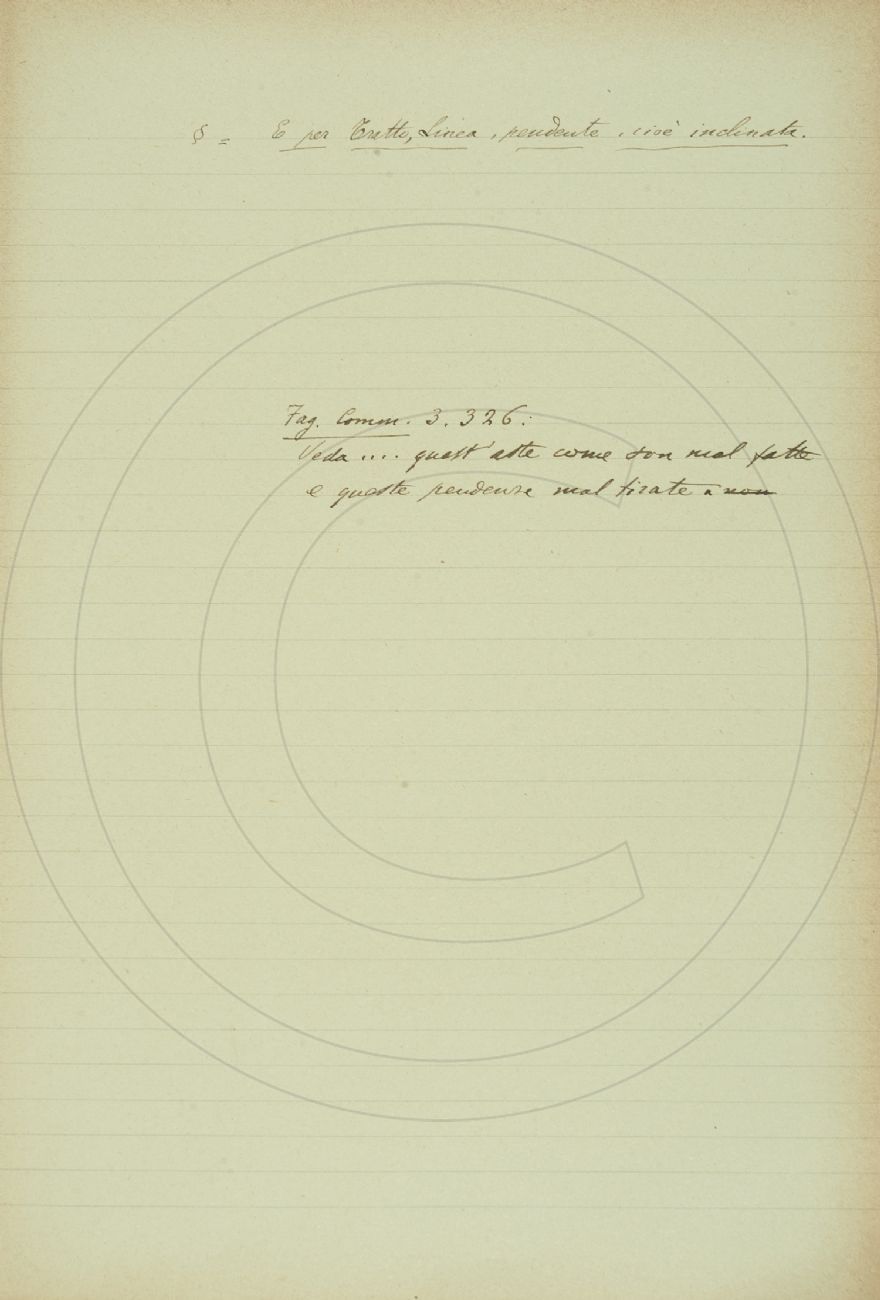 § = E per Tratto, Linea, pendente, cioè inclinata.
Fag. Comm. 3. 326:
Veda .... quest'aste come son mal fatte
e queste pendenze mal tirate e non